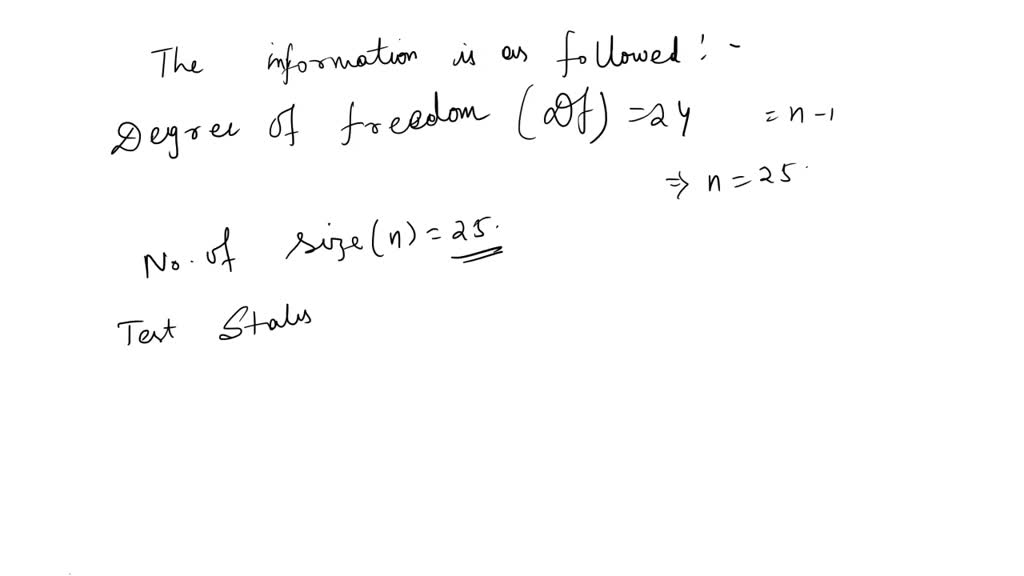 The information is as followed! -
Degree of freedom (Df) = 24 = n - 1
⇒ n = 25.
No. of size (n) = 25.
Test